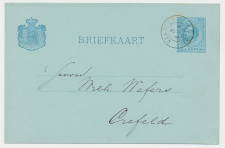 BRIEFKAART
Herrn
Wilh. Wefers
Crefeld